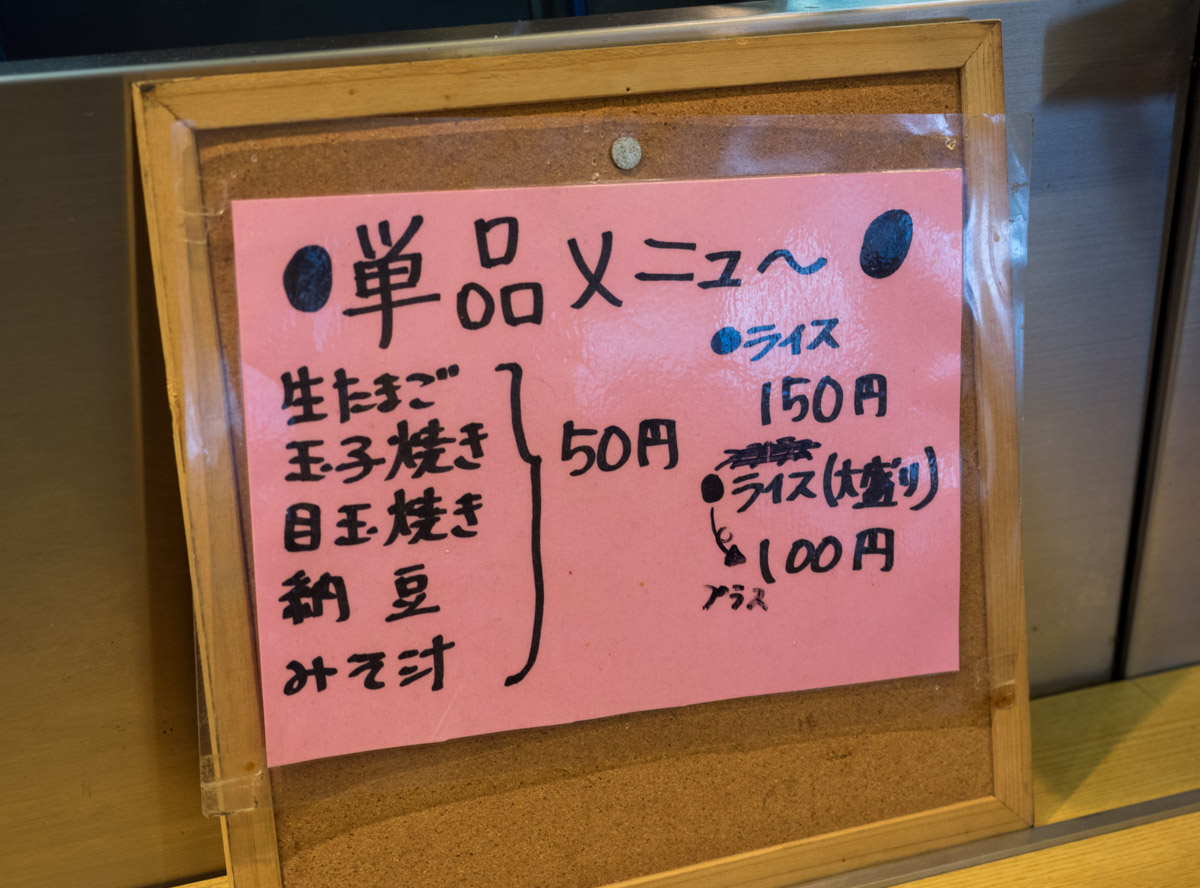 ●単品メニュ〜●
生たまご
玉子焼き
目玉焼き
納豆
みそ汁
50円
●ライス
150円
●ライス(大盛り)
プラス
100円